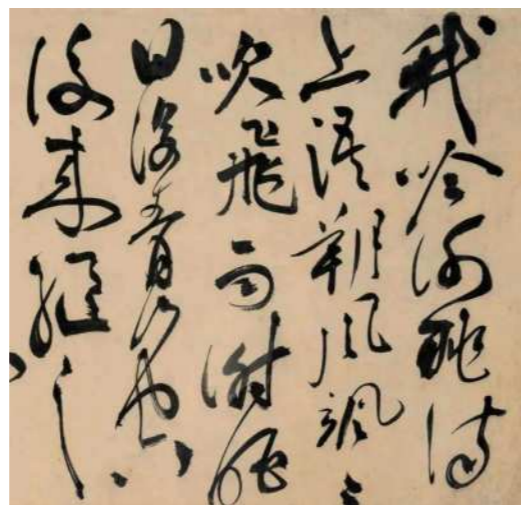 我吟謝朓詩
上語朔風颯〻
吹飛雨謝朓
已沒青山空
後來繼之